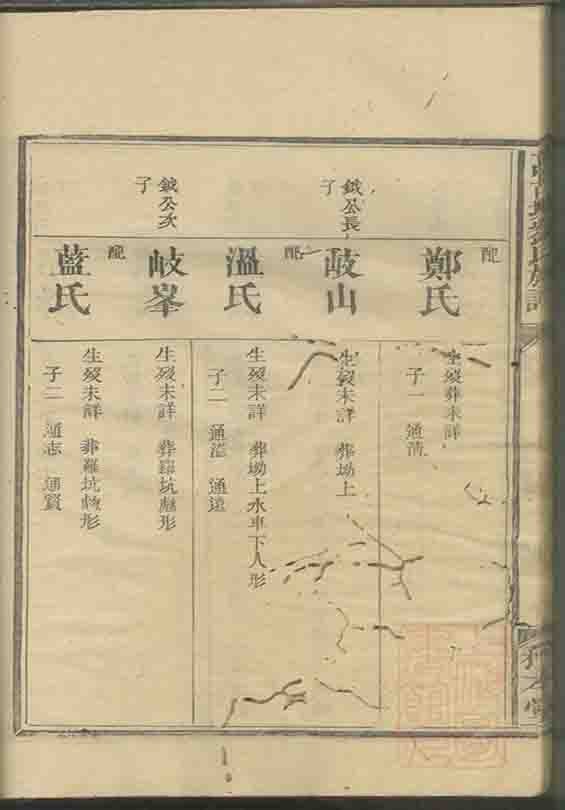 配
鄭氏
生歿葬未詳
子一 通清
鉞公長
子
岐山
生歿未詳 葬坳上
配
溫氏
生歿未詳 葬坳上水車下人形
子二 通 通遠
鉞公次
子
岐峯
生歿未詳 葬羅坑 形
配
藍氏
生歿未詳 葬羅坑 形
子二 通志 通賢